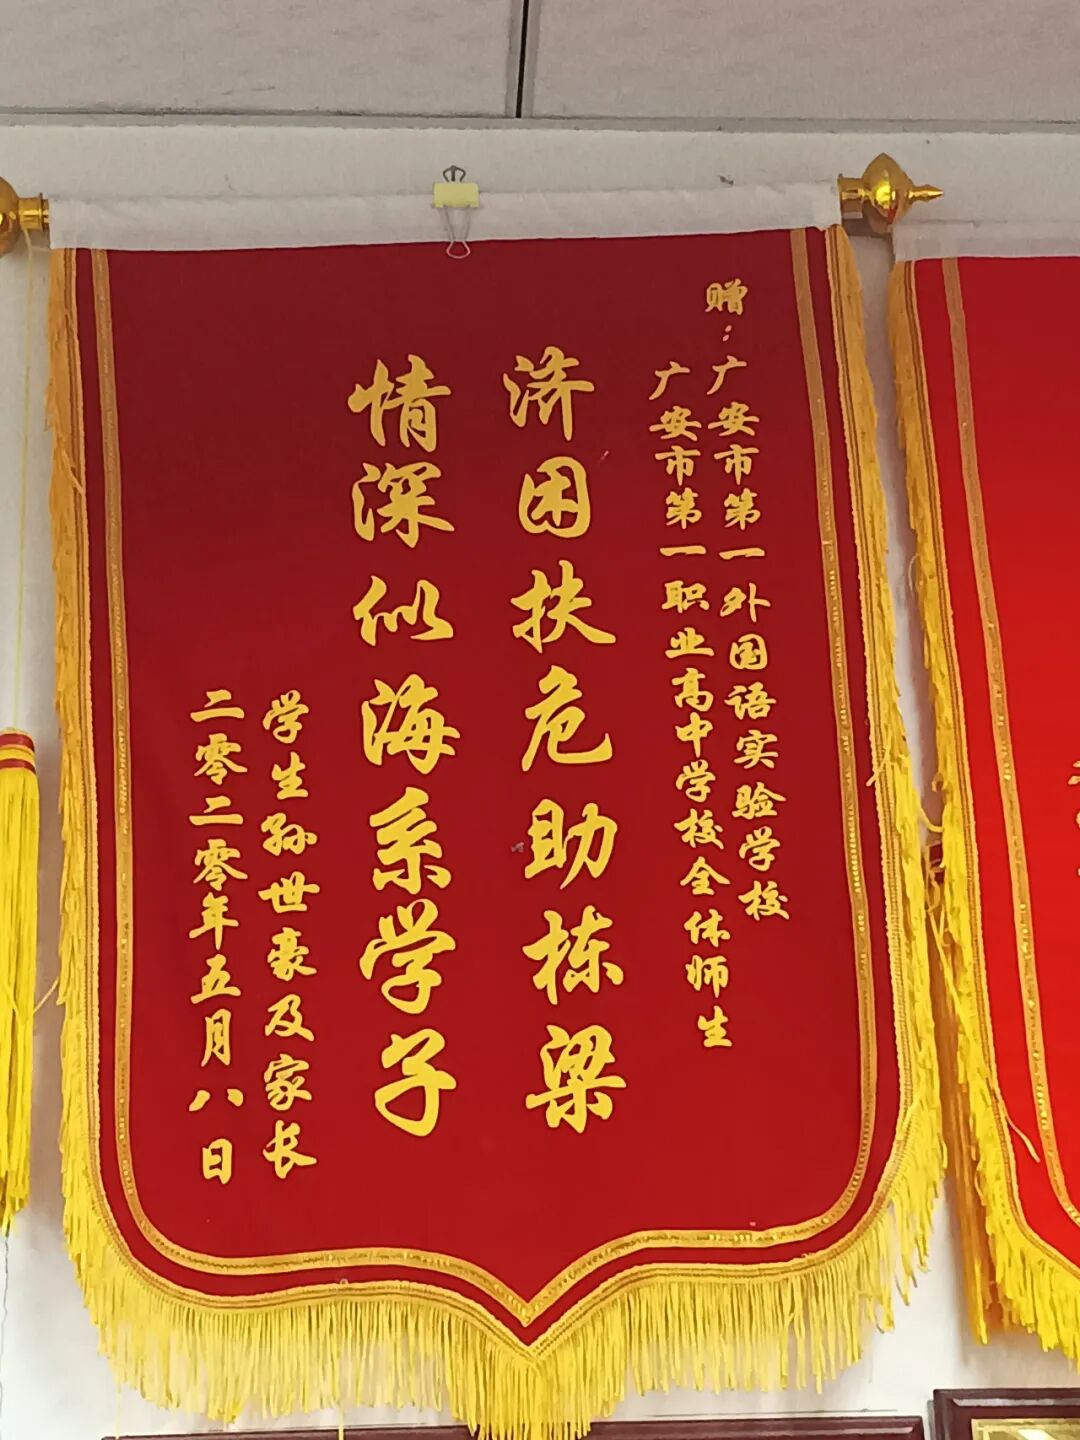 赠：广安市第一外国语实验学校
广安市第一职业高中学校全体师生
济困扶危助栋梁
情深似海系学子
学生孙世豪及家长
二零二零年五月八日